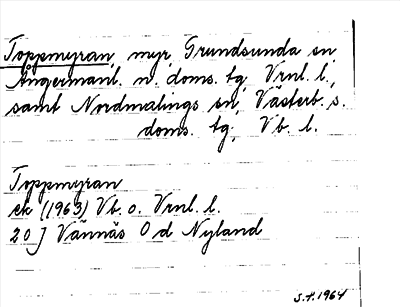 Toppmyran, myr, Grundsunda sn,
Ångermanl. n. doms. tg, Vrnl. l.,
samt Nordmalings sn, Västerb. s.
doms. tg, Vb. l.
Toppmyran
ek (1963) Vb. o. Vrnl. l.
20 J Vännäs O d Nyland
S.A. 1964